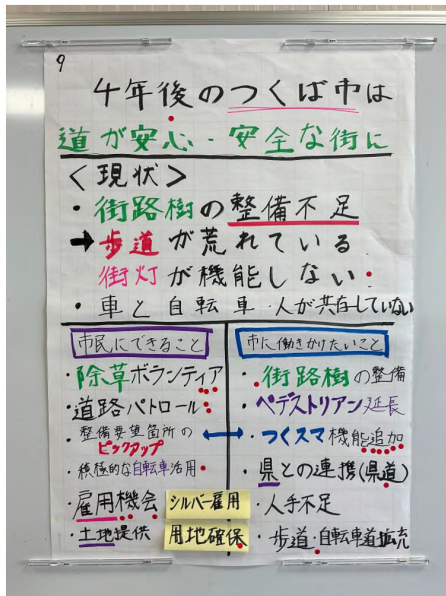 9
4年後のつくば市は
道が安心・安全な街に
＜現状＞
・街路樹の整備不足
→歩道が荒れている
街灯が機能しない
・車と自転車・人が共存していない
市民にできること
・除草ボランティア
・道路パトロール
・整備要望箇所の
ピックアップ
・積極的な自転車活用
・雇用機会 シルバー雇用
・土地提供 用地確保
市に働きかけたいこと
・街路樹の整備
・ペデストリアン延長
・つくスマ機能追加
・県との連携(県道)
・人手不足
・歩道・自転車道拡充